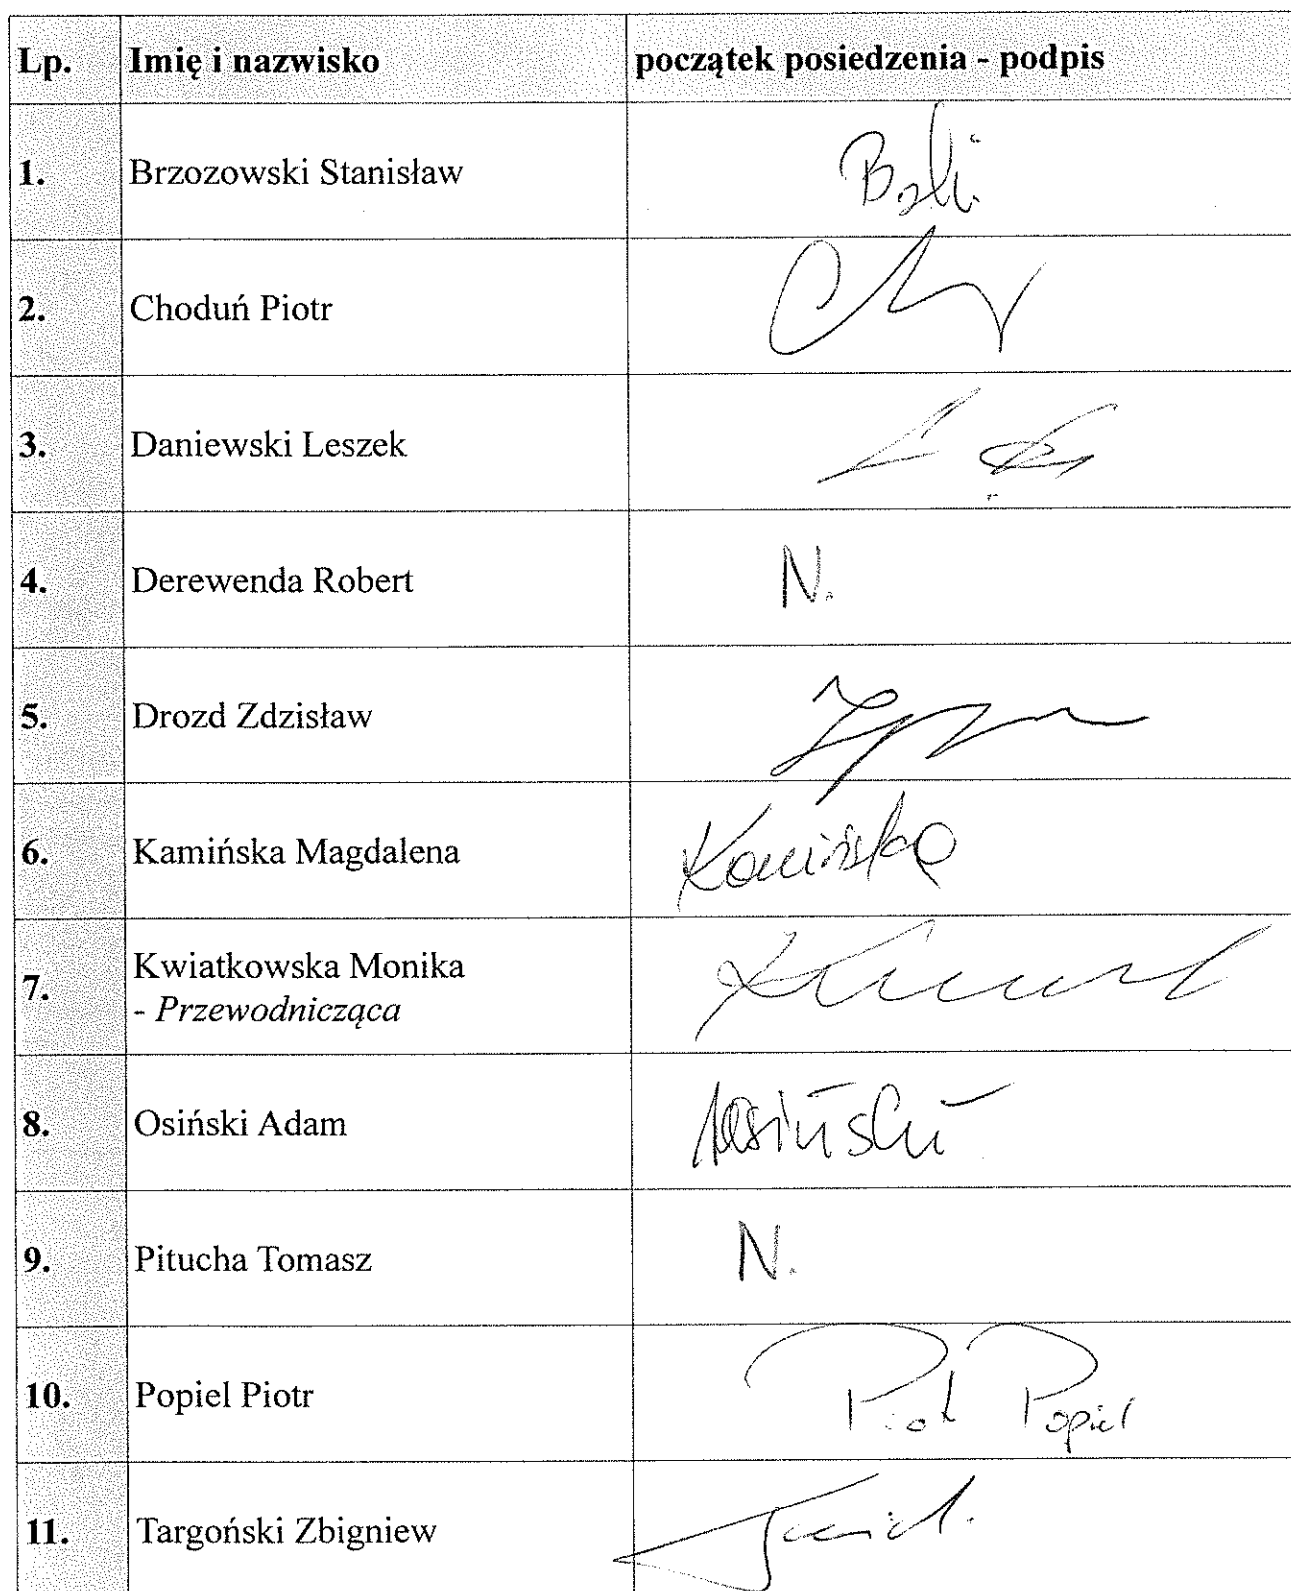 Lp. Imię i nazwisko początek posiedzenia - podpis
1. Brzozowski Stanisław
2. Choduń Piotr
3. Daniewski Leszek
4. Derewenda Robert N.
5. Drozd Zdzisław
6. Kamińska Magdalena Kamińska
7. Kwiatkowska Monika
- Przewodnicząca
8. Osiński Adam AOsiński
9. Pitucha Tomasz N.
10. Popiel Piotr Piotr Popiel
11. Targoński Zbigniew